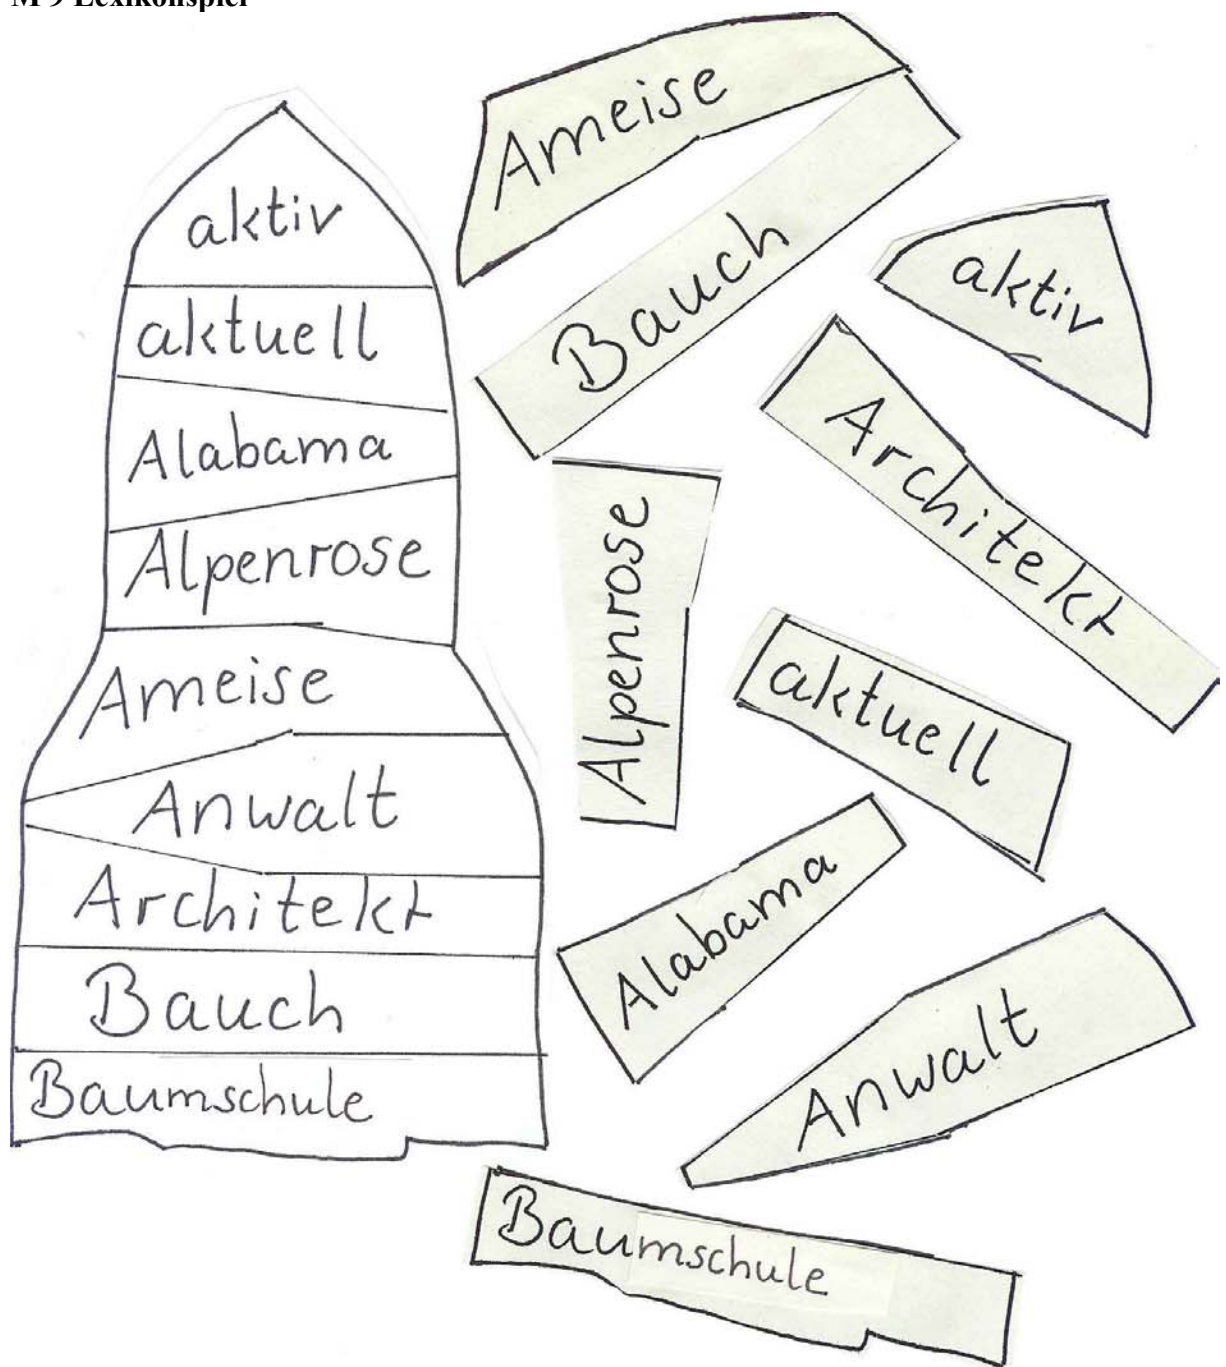 M 9 Lexikonspiel
aktiv
aktuell
Alabama
Alpenrose
Ameise
Anwalt
Architekt
Bauch
Baumschule
Ameise
Bauch
aktiv
Architekt
Alpenrose
aktuell
Alabama
Anwalt
Baumschule